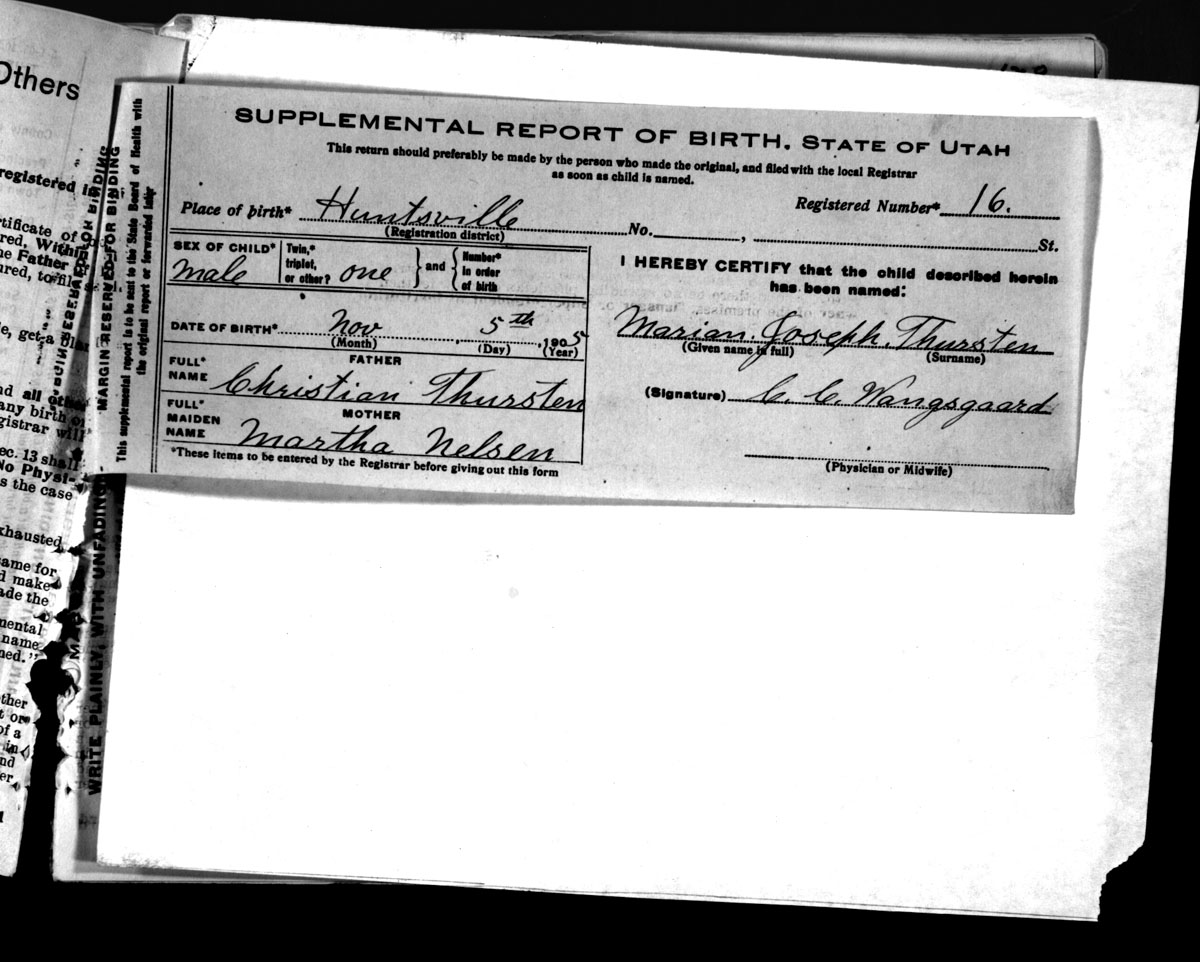 Others
registered in
tificate of
red, Within
ne Father or
ured, to fil
e, get a blan
nd all other
any birth or
gistrar will
ec. 13 shall
No Physi-
s the case
xhausted
ame for
d make
ade the
mental
name
ned."
ther
t or
of a
in
nd
er
MARGIN RESERVED FOR BINDING
WRITE PLAINLY, WITH UNFADING
This supplemental report is to be sent to the State Board of Health with
the original report or forwarded later
SUPPLEMENTAL REPORT OF BIRTH. STATE OF UTAH
This return should preferably be made by the person who made the original, and filed with the local Registrar
as soon as child is named.
Registered Number* 16.
Place of birth* Huntsville No. , St.
(Registration district)
SEX OF CHILD* male
Twin,* triplet, or other? one } and { Number* in order of birth
DATE OF BIRTH* Nov 5th, 1905
(Month) (Day) (Year)
FATHER
FULL* NAME Christian Thursten
MOTHER
FULL* MAIDEN NAME Martha Nelsen
*These items to be entered by the Registrar before giving out this form
I HEREBY CERTIFY that the child described herein
has been named:
Marian. Joseph. Thursten
(Given name in full) (Surname)
(Signature) C. C. Wangsgaard
(Physician or Midwife)